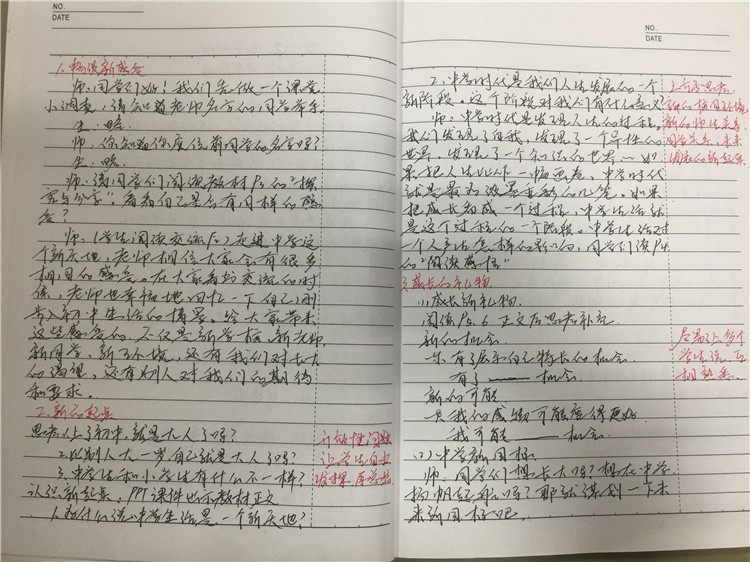 NO.
DATE
1.畅谈新感受
师:同学们好!我们先做一个课堂
小调查,请知道老师名字的同学举手
生:略.
师:你知道你座位前同学的名字吗?
生:略.
师:请同学们阅读教材P3的"探
究与分享",看看自己是否有同样的感
受?
师:(学生阅读交流后)走进中学这
个新天地,老师相信大家会有很多
相同的感受。在大家看书交流的时
候,老师也幸福地回忆一下自己刚
步入初中生活的情景。给大家带来
这些感受的,不仅是新学校、新老师、
新同学、新环境,还有我们对长大
的渴望,还有别人对我们的期待
和要求.
2.新的起点
思考:1.上了初中,就是大人了吗?
2.比别人大一岁自己就是大人了吗?
3.中学生和小学生有什么不一样?
认识新起点,PPT课件出示教材正文
1.为什么说中学生活是一个新天地?
开放性问题
让学生自由
发挥
NO.
DATE
2.中学时代是我们人生发展的一个
新阶段。这个阶段对我们有什么意义?
师:中学时代是发现人生的过程。
我们发现了自我,发现了一个异性的
世界,发现了一个知识的世界……如
果把人生比作一幅画卷,中学时代
就是最为浓墨重彩的几笔。如果
把成长看成一个过程,中学生活就
是这个过程的一个阶段。中学生活对
一个人产生怎样的影响,同学们读P4
的"阅读感悟"
3.成长的礼物
(1)成长新礼物.
阅读P5、6正文后思考补充
新的机会
乐:有了展示自己特长的机会.
有了____机会.
新的可能.
贝:我的成绩可能变得更好
我可能____机会.
(2)中学新目标.
师:同学们想长大吗?想在中学
扬帆起航吗?那就谋划一下未
来新目标吧.
新的校园环境
新的师生关系
同学关系,未来
尽量让每个
学生说,互
相熟悉.